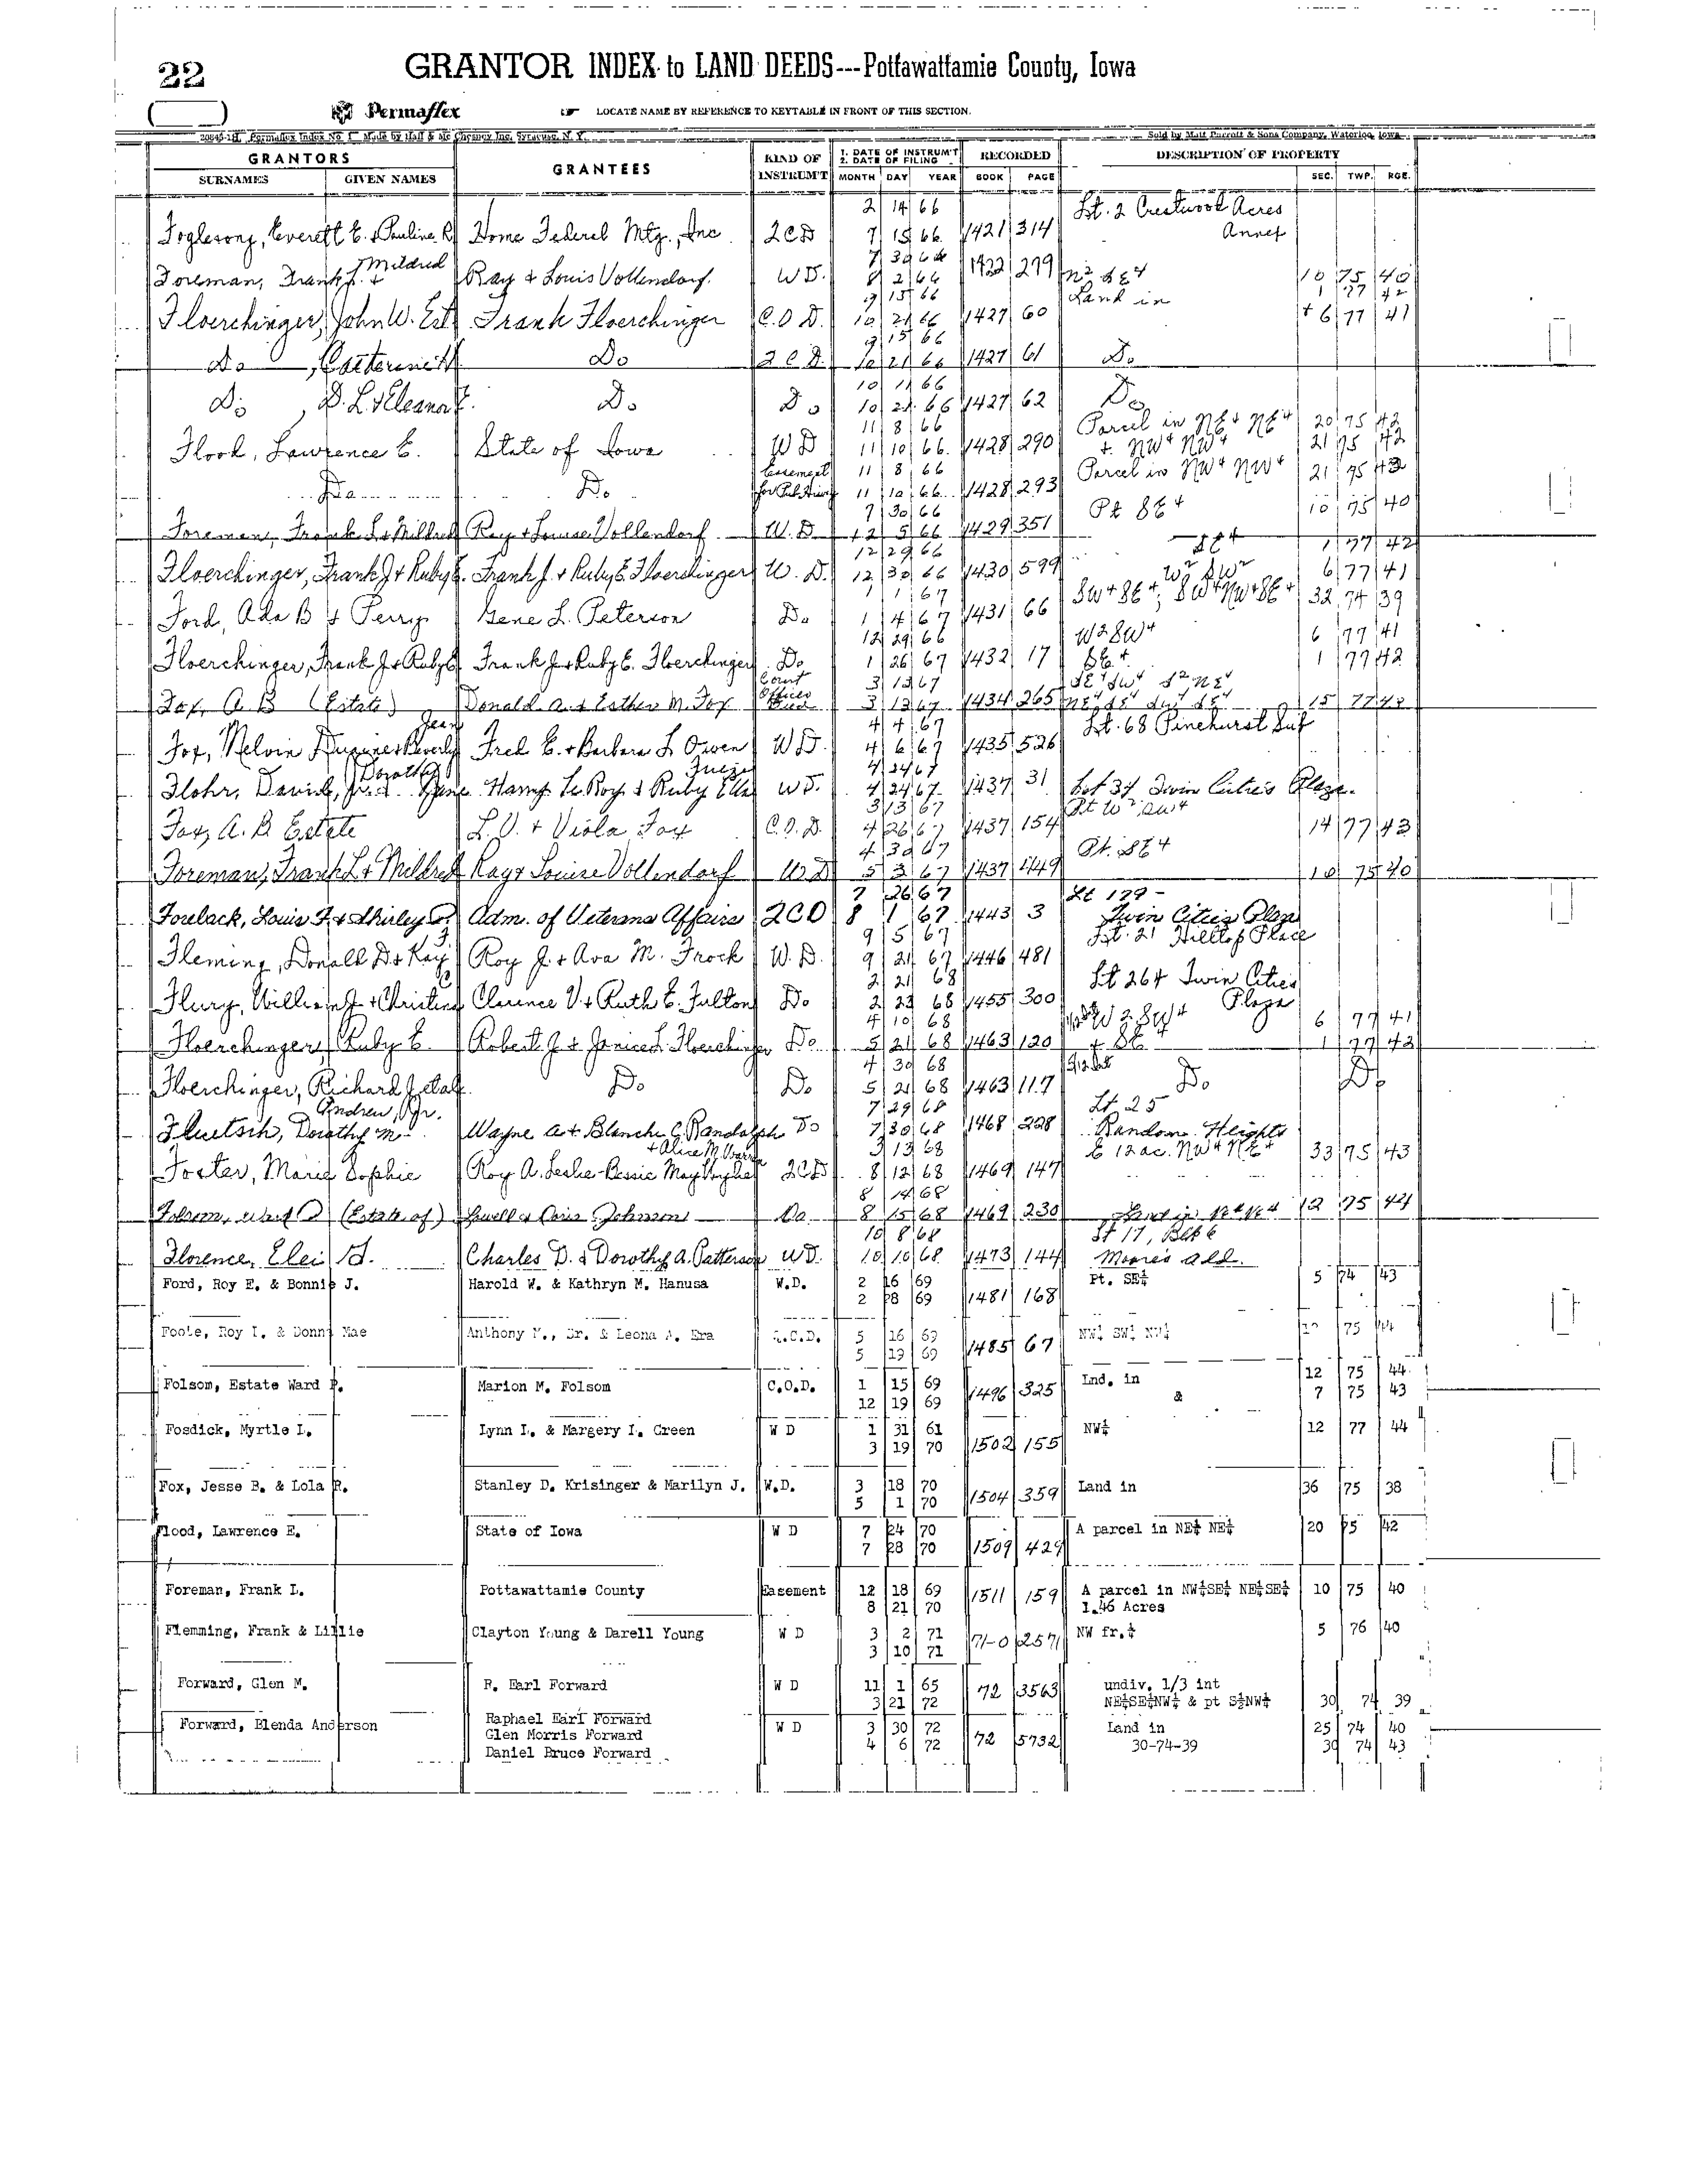 22
GRANTOR INDEX to LAND DEEDS---Pottawattamie County, Iowa
Permaflex
LOCATE NAME BY REFERENCE TO KEYTABLE IN FRONT OF THIS SECTION.
Permaflex Index No. 1 Made by Hall & Mc Chesney Inc. Syracuse, N. Y. Sold by Matt Parrott & Sons Company, Waterloo, Iowa
GRANTORS GRANTEES KIND OF INSTRUM'T 1. DATE OF INSTRUM'T 2. DATE OF FILING RECORDED DESCRIPTION OF PROPERTY
SURNAMES GIVEN NAMES MONTH DAY YEAR BOOK PAGE SEC. TWP. RGE.
2 14 66 Lt. 2 Crestwood Acres
Foglesong, Everett E. & Pauline R. Home Federal Mtg., Inc QCD 7 15 66 1421 314 Annex
7 30 66
Foreman, Frank L. & Mildred Ray & Louis Vollendorf. WD. 8 2 66 1422 279 N2 SE4 10 75 40
9 15 66 Land in 1 77 42
Floerchinger, John W. Est Frank Floerchinger C.O.D. 10 21 66 1427 60 + 6 77 41
9 15 66
Do , Catherine Do QCD. 10 21 66 1427 61 Do
10 11 66
Do , D. L. & Eleanor Do Do 10 21 66 1427 62 Do
11 8 66 Parcel in NE4 NE4 20 75 42
Flood, Lawrence E. State of Iowa WD 11 10 66 1428 290 + NW4 NW4 21 75 42
Easement 11 8 66 Parcel in NW4 NW4 21 75 42
Do Do 11 10 66 1428 293
7 30 66 Pt SE4 10 75 40
Foreman, Frank L. & Mildred Ray & Louise Vollendorf W.D 12 5 66 1429 351
12 29 66 SE4 1 77 42
Floerchinger, Frank J & Ruby E. Frank J. & Ruby E. Floerchinger W.D. 12 30 66 1430 599 W2 SW2 6 77 41
1 1 67 SW4 SE4, SW4 NW4 SE4 32 74 39
Ford, Ada B & Perry Gene L. Peterson Do 1 4 67 1431 66
12 29 66 W2 SW4 6 77 41
Floerchinger, Frank J & Ruby E Frank J & Ruby E. Floerchinger Do 1 26 67 1432 17 SE4 1 77 42
Court 3 13 67 SE4 SW4 S2 NE4
Fox, A B (Estate) Donald A. & Esther M. Fox Officer Deed 3 13 67 1434 265 15 77 43
4 4 67 Lt. 68 Pinehurst Sub
Fox, Melvin Eugene & Beverly Jean Fred E. & Barbara L Owen WD. 4 6 67 1435 526
4 24 67
Flohr, David, Jr. & Dorothy Jane Hamp Le Roy & Ruby WD. 4 24 67 1437 31 Lot 34 Twin Cities Plaza.
3 13 67 Pt W2 SW4
Fox, A. B Estate L. V. & Viola Fox C.O.D. 4 26 67 1437 154 14 77 43
4 30 67 Pt. SE4
Foreman, Frank L & Mildred Ray & Louise Vollendorf WD 5 3 67 1437 449 10 75 40
7 26 67 Lt 179 -
Forelack, Louis F. & Shirley Adm. of Veterans Affairs QCD 8 1 67 1443 3 Twin Cities Plaza
9 5 67 Lt. 21 Hilltop Place
Fleming, Donald D. & Kay F Roy J. & Ava M. Frock W.D. 9 21 67 1446 481
2 21 68 Lt 264 Twin Cities
Flury, William J. & Christine Clarence V. & Ruth E. Fulton Do 2 23 68 1455 300 Plaza
4 10 68 W2 SW4 6 77 41
Floerchinger, Ruby E. Robert J. & Janice L. Floerchinger Do 5 21 68 1463 120 + SE4 1 77 42
4 30 68
Floerchinger, Richard J etal. Do Do 5 21 68 1463 117 Do Do
Andrew, Jr. 7 29 68 Lt 25
Fluetsch, Dorothy M Wayne A & Blanche C. Randolph Do 7 30 68 1468 228 Random Heights
+ Alice M. 3 13 68 E 12 ac. NW4 NE4 33 75 43
Foster, Marie Sophie Roy A. Leslie-Bessie May QCD 8 12 68 1469 147
8 14 68
Folsom, Ward P (Estate of) Lowell & Doris Johnson Do 8 15 68 1469 230 Land in NE4 NE4 12 75 44
10 8 68 Lt 17, Blk 6
Florence, Elei H. Charles D. & Dorothy A. Patterson WD. 10 10 68 1473 144 Moore's Add.
Ford, Roy E. & Bonnie J. Harold W. & Kathryn M. Hanusa W.D. 2 16 69 Pt. SE¼ 5 74 43
2 28 69 1481 168
Foote, Roy I. & Donna Mae Anthony M., Sr. & Leona A. Era R.C.D. 5 16 69 NW¼ SW¼ NW¼ 75 44
5 19 69 1485 67
Folsom, Estate Ward P. Marion M. Folsom C.O.D. 1 15 69 Lnd. in 12 75 44
12 19 69 1496 325 & 7 75 43
Fosdick, Myrtle L. Lynn L. & Margery I. Green W D 1 31 61 NW¼ 12 77 44
3 19 70 1502 155
Fox, Jesse B. & Lola R. Stanley D. Krisinger & Marilyn J. W.D. 3 18 70 Land in 36 75 38
5 1 70 1504 359
Flood, Lawrence E. State of Iowa W D 7 24 70 A parcel in NE¼ NE¼ 20 75 42
7 28 70 1509 429
Foreman, Frank L. Pottawattamie County Easement 12 18 69 A parcel in NW¼SE¼ NE¼SE¼ 10 75 40
8 21 70 1511 159 1.46 Acres
Flemming, Frank & Lillie Clayton Young & Darell Young W D 3 2 71 NW fr.¼ 5 76 40
3 10 71 71-0 2571
Forward, Glen M. R. Earl Forward W D 11 1 65 undiv. 1/3 int
3 21 72 72 3563 NE¼SE¼NW¼ & pt S½NW¼ 30 74 39
Raphael Earl Forward
Forward, Blenda Anderson Glen Morris Forward W D 3 30 72 Land in 25 74 40
Daniel Bruce Forward 4 6 72 72 5732 30-74-39 30 74 43